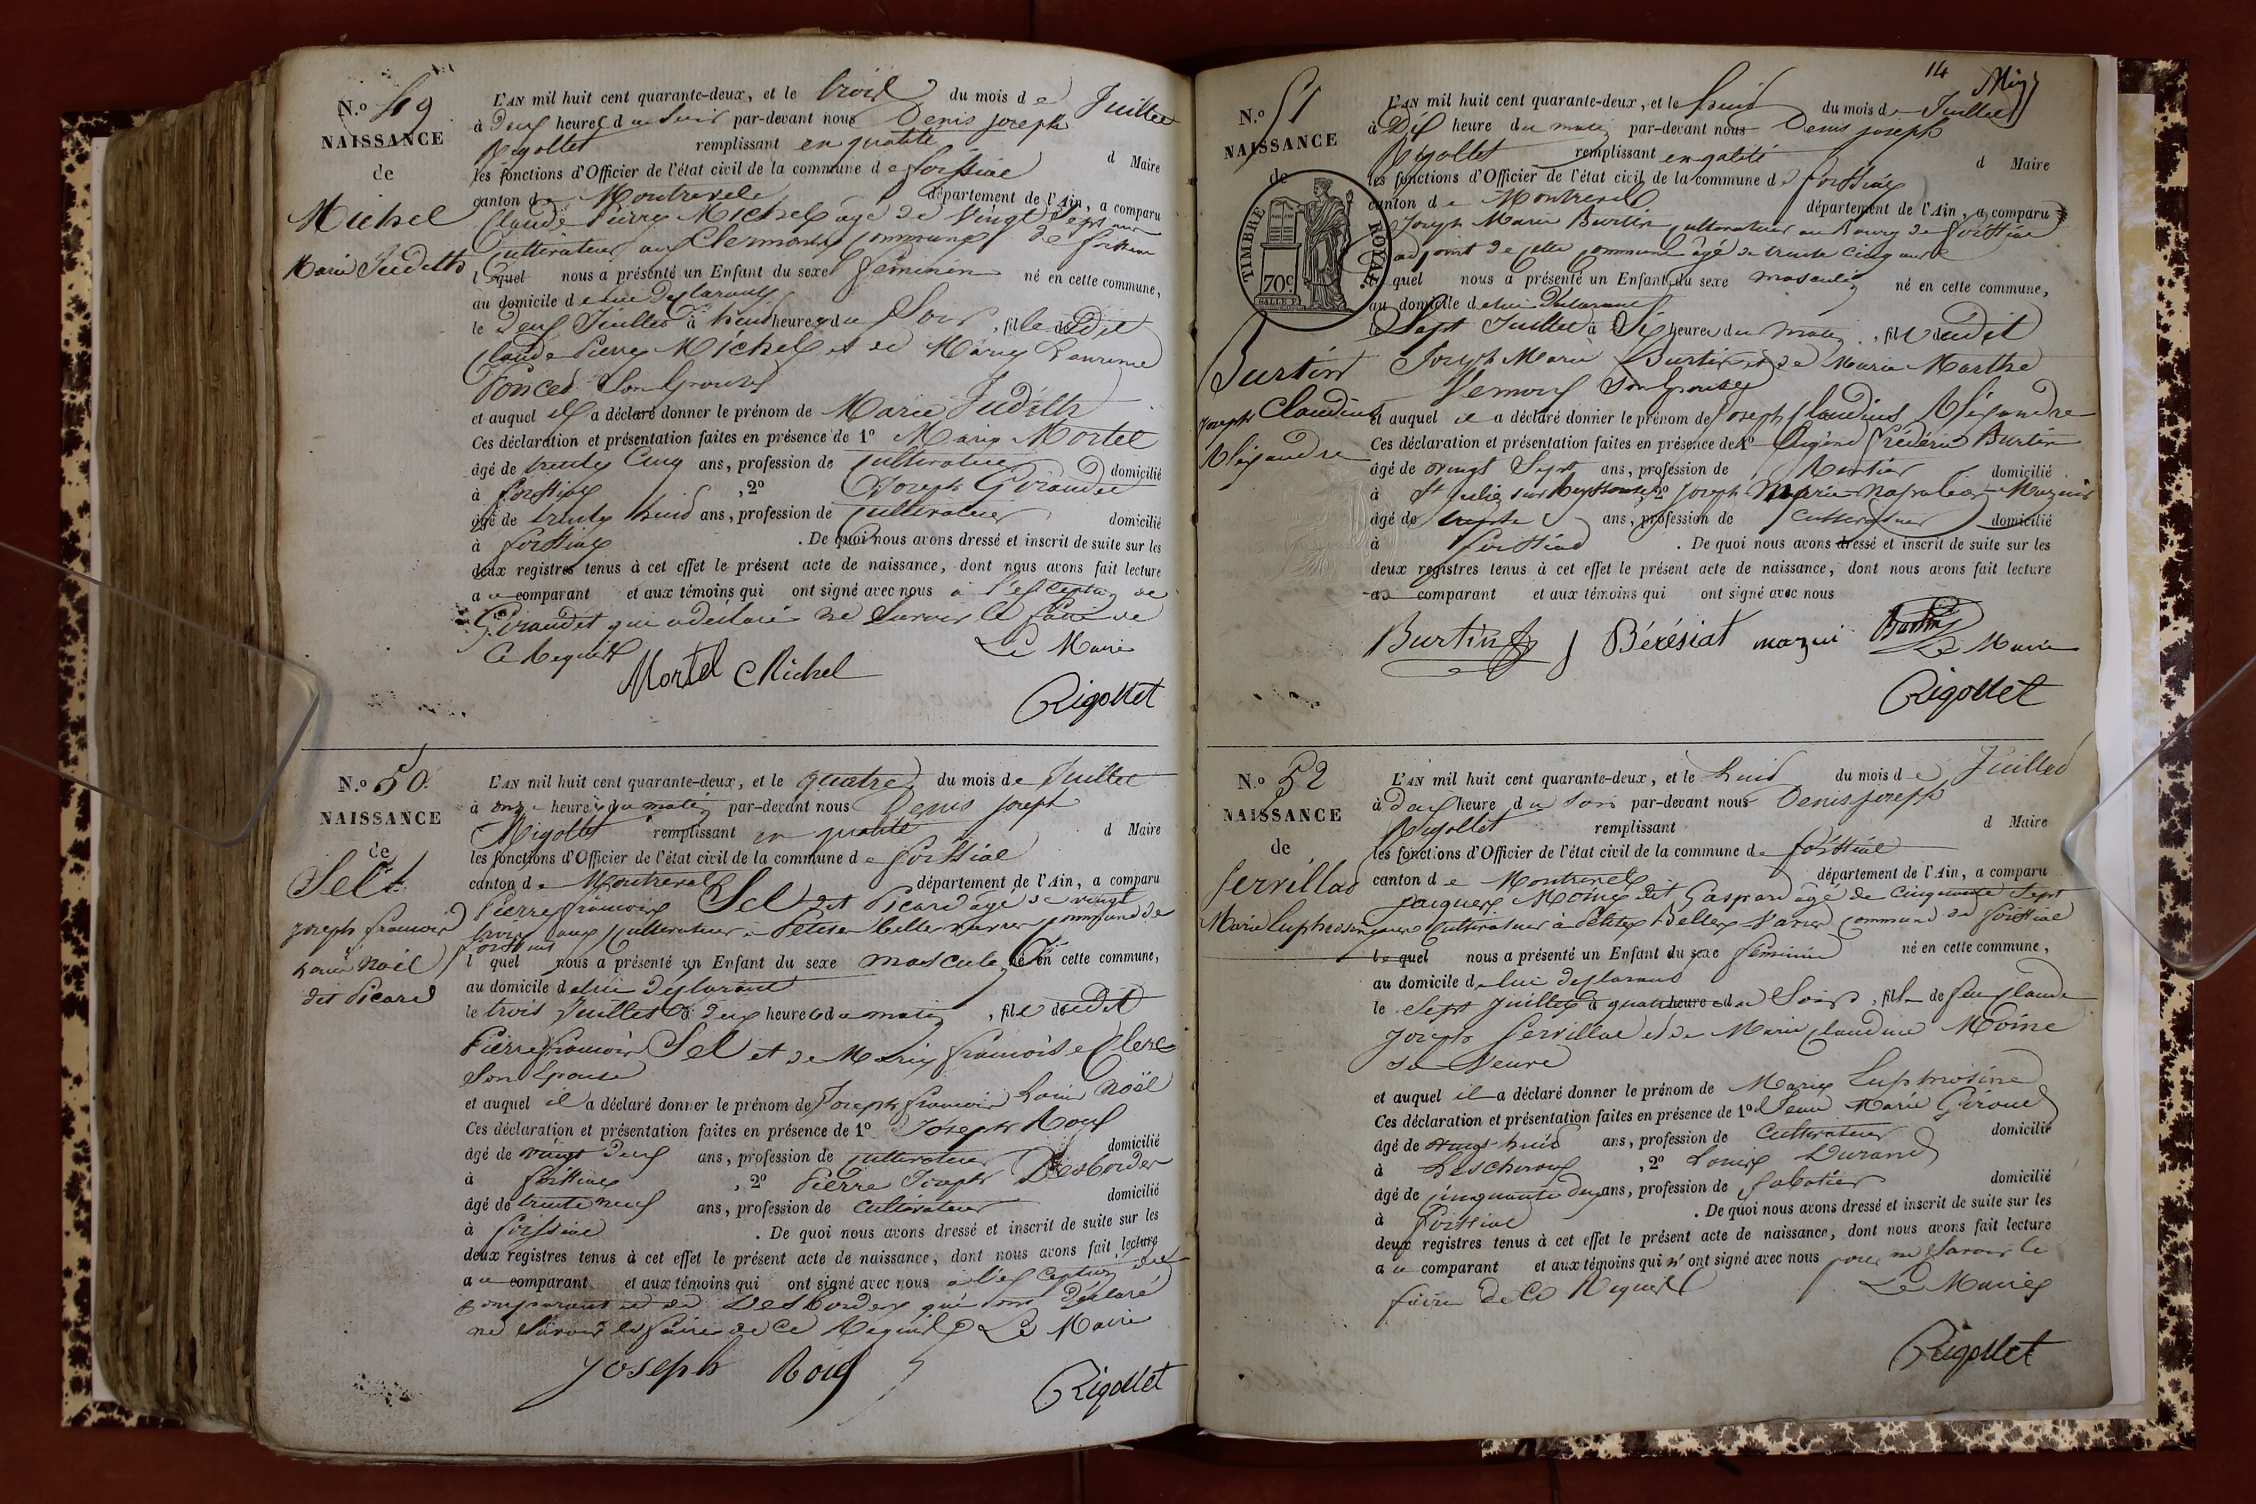 N.o 49
NAISSANCE
de
Michel
Marie Judith
L'AN mil huit cent quarante-deux, et le trois du mois de Juillet
à Deux heures du Soir par-devant nous Denis joseph
Rigollet remplissant en qualité d Maire
les fonctions d'Officier de l'état civil de la commune de foissiat
canton de Montrevel département de l'Ain, a comparu
Claude Pierre Michel âgé de vingt Sept ans
cultivateur aux Clermonts commune de foissiat
lequel nous a présenté un Enfant du sexe féminin né en cette commune,
au domicile de lui Déclarant
le Deux Juillet à huit heures du Soir, fille dudit
Claude Pierre Michel et de Marie Laurence
Poncet Son Epouse
et auquel il a déclaré donner le prénom de Marie Judith
Ces déclaration et présentation faites en présence de 1o Marie Mortel
âgé de trente Cinq ans, profession de cultivateur domicilié
à foissiat, 2o Joseph Giraudet
âgé de trente huit ans, profession de Cultivateur domicilié
à foissiat. De quoi nous avons dressé et inscrit de suite sur les
deux registres tenus à cet effet le présent acte de naissance, dont nous avons fait lecture
au comparant et aux témoins qui ont signé avec nous à l'exception de
Giraudet qui a déclaré ne Savoir le faire de
Ce Requis Le Maire
Mortel Michel
Rigollet
N.o 50.
NAISSANCE
de
Sel
joseph francois
Louis Noël
dit Picard
L'AN mil huit cent quarante-deux, et le quatre du mois de Juillet
à onze heures du matin par-devant nous Denis joseph
Rigollet remplissant en qualité d Maire
les fonctions d'Officier de l'état civil de la commune de foissiat
canton de Montrevel département de l'Ain, a comparu
Pierre francois Sel dit Picard âgé de vingt
trois ans Cultivateur à Petites Belles Vavres commune de
foissiat
l quel nous a présenté un Enfant du sexe masculin né en cette commune,
au domicile de lui Déclarant
le trois Juillet à deux heures du matin, fils dudit
Pierre francois Sel et de Marie francoise Clerc
Son Epouse
et auquel il a déclaré donner le prénom de Joseph francois Louis Noël
Ces déclaration et présentation faites en présence de 1o Joseph Roux
âgé de vingt Deux ans, profession de cultivateur domicilié
à foissiat, 2o Pierre Joseph Desbordes
âgé de trente neuf ans, profession de Cultivateur domicilié
à foissiat. De quoi nous avons dressé et inscrit de suite sur les
deux registres tenus à cet effet le présent acte de naissance, dont nous avons fait lecture
au comparant et aux témoins qui ont signé avec nous à l'exception du
comparant et de Desbordes qui ont déclaré
ne Savoir le faire de Ce Requis Le Maire
joseph Roux
Rigollet
14
N.o 51
NAISSANCE
de
TIMBRE ROYAL
70c.
Burtin
joseph Claudius
Alexandre
L'AN mil huit cent quarante-deux, et le huit du mois de Juillet
à Dix heure du matin par-devant nous Denis joseph
Rigollet remplissant en qalité d Maire
les fonctions d'Officier de l'état civil de la commune de foissiat
canton de Montrevel département de l'Ain, a comparu
Joseph Marie Burtin cultivateur au Bourg de foissiat
adjoint de cette commune âgé de trente cinq ans
lequel nous a présenté un Enfant du sexe masculin né en cette commune,
au domicile de lui Déclarant
le Sept Juillet à Six heures du matin, fils dudit
Joseph Marie Burtin et de Marie Marthe
Son Epouse
et auquel il a déclaré donner le prénom de Joseph Claudius Alexandre
Ces déclaration et présentation faites en présence de 1o Eugène frédéric Burtin
âgé de vingt Sept ans, profession de Rentier domicilié
à St Julien sur Reyssouze, 2o Joseph Marie Napoléon Mazuir
âgé de trente ans, profession de Cultivateur domicilié
à foissiat. De quoi nous avons dressé et inscrit de suite sur les
deux registres tenus à cet effet le présent acte de naissance, dont nous avons fait lecture
au comparant et aux témoins qui ont signé avec nous
Burtin f Bérésiat mazui Burtin Le Maire
Rigollet
N.o 52
NAISSANCE
de
Servillat
Marie Euphrosine
L'AN mil huit cent quarante-deux, et le huit du mois de Juillet
à Deux heure du Soir par-devant nous Denis joseph
Rigollet remplissant d Maire
les fonctions d'Officier de l'état civil de la commune de foissiat
canton de Montrevel département de l'Ain, a comparu
jacques Moine dit Gaspard âgé de Cinquante Sept
ans Cultivateur à Petites Belles Vavres commune de foissiat
lequel nous a présenté un Enfant du sexe féminin né en cette commune,
au domicile de lui Déclarant
le Sept juillet à quatre heures du Soir, fille de feu Claude
joseph Servillat et de Marie Claudine Moine
Sa Veuve
et auquel il a déclaré donner le prénom de Marie Euphrosine
Ces déclaration et présentation faites en présence de 1o Jean Marie Giroud
âgé de vingt huit ans, profession de Cultivateur domicilié
à Lescheroux, 2o Louis Durand
âgé de Cinquante deux ans, profession de Sabotier domicilié
à foissiat. De quoi nous avons dressé et inscrit de suite sur les
deux registres tenus à cet effet le présent acte de naissance, dont nous avons fait lecture
au comparant et aux témoins qui n'ont signé avec nous pour ne Savoir le
faire de Ce Requis Le Maire
Rigollet